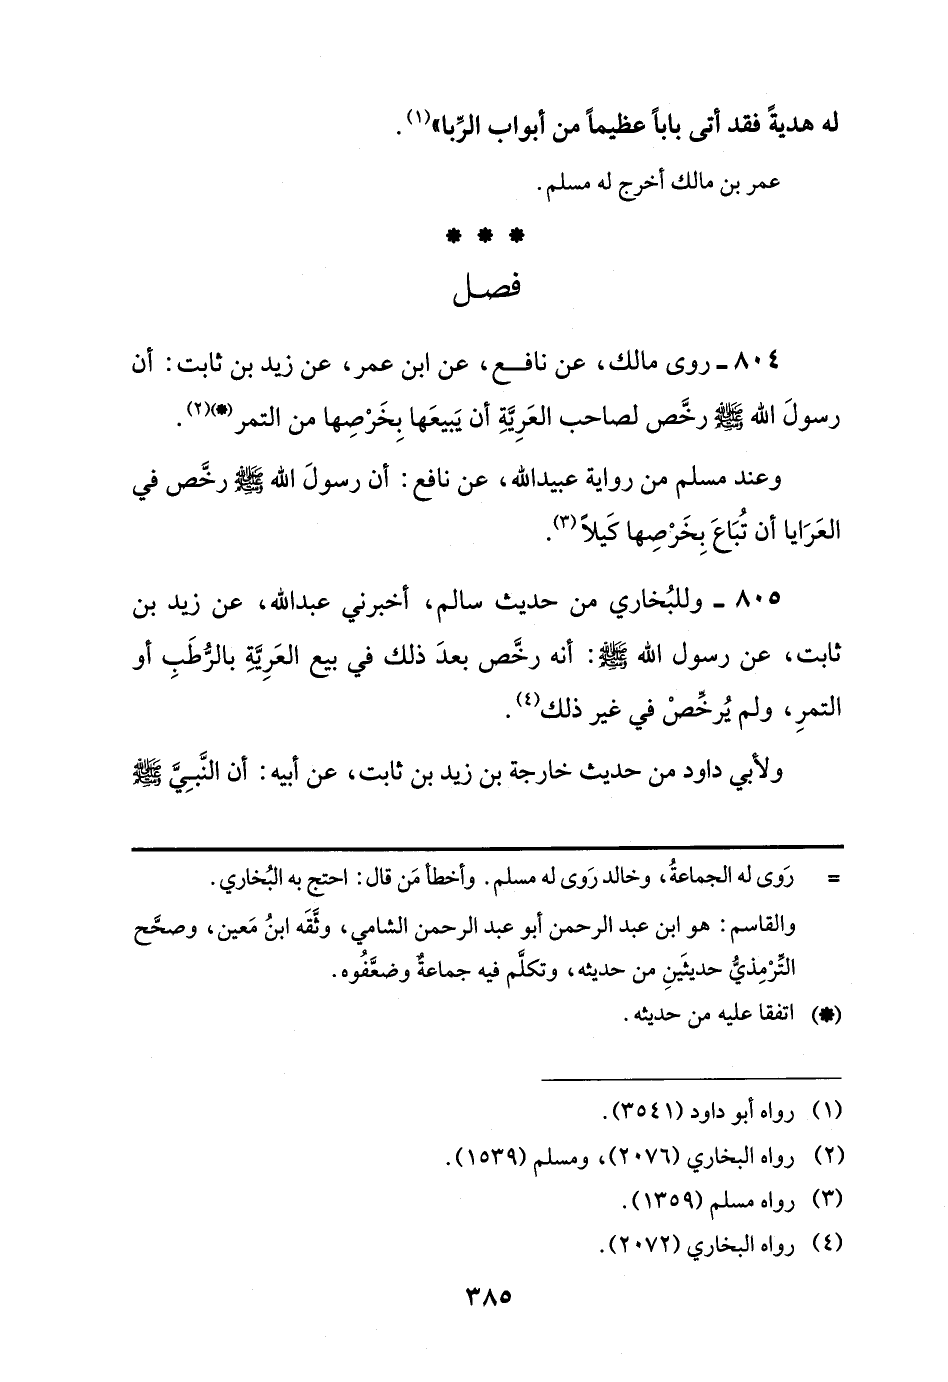 له هديةً فقد أتى باباً عظيماً من أبواب الرِّبا»(١).
عمر بن مالك أخرج له مسلم.
* * *
فصل
٨٠٤ ـ روى مالك، عن نافع، عن ابن عمر، عن زيد بن ثابت: أن
رسولَ الله ﷺ رخَّص لصاحب العَرِيَّةِ أن يَبيعَها بِخَرْصِها من التمر(*)(٢).
وعند مسلم من رواية عبيدالله، عن نافع: أن رسولَ الله ﷺ رخَّص في
العَرَايا أن تُبَاعَ بِخَرْصِها كَيلاً(٣).
٨٠٥ ـ وللبُخاري من حديث سالم، أخبرني عبدالله، عن زيد بن
ثابت، عن رسول الله ﷺ: أنه رخَّص بعدَ ذلك في بيع العَرِيَّةِ بالرُّطَبِ أو
التمرِ، ولم يُرخِّصْ في غير ذلك(٤).
ولأبي داود من حديث خارجة بن زيد بن ثابت، عن أبيه: أن النَّبيَّ ﷺ
= رَوى له الجماعةُ، وخالد رَوى له مسلم. وأخطأ مَن قال: احتج به البُخاري.
والقاسم: هو ابن عبد الرحمن أبو عبد الرحمن الشامي، وثَّقَه ابنُ مَعين، وصحَّح
التِّرْمِذيُّ حديثَينِ من حديثه، وتكلَّم فيه جماعةٌ وضعَّفُوه.
(*) اتفقا عليه من حديثه.
(١) رواه أبو داود (٣٥٤١).
(٢) رواه البخاري (٢٠٧٦)، ومسلم (١٥٣٩).
(٣) رواه مسلم (١٣٥٩).
(٤) رواه البخاري (٢٠٧٢).
٣٨٥